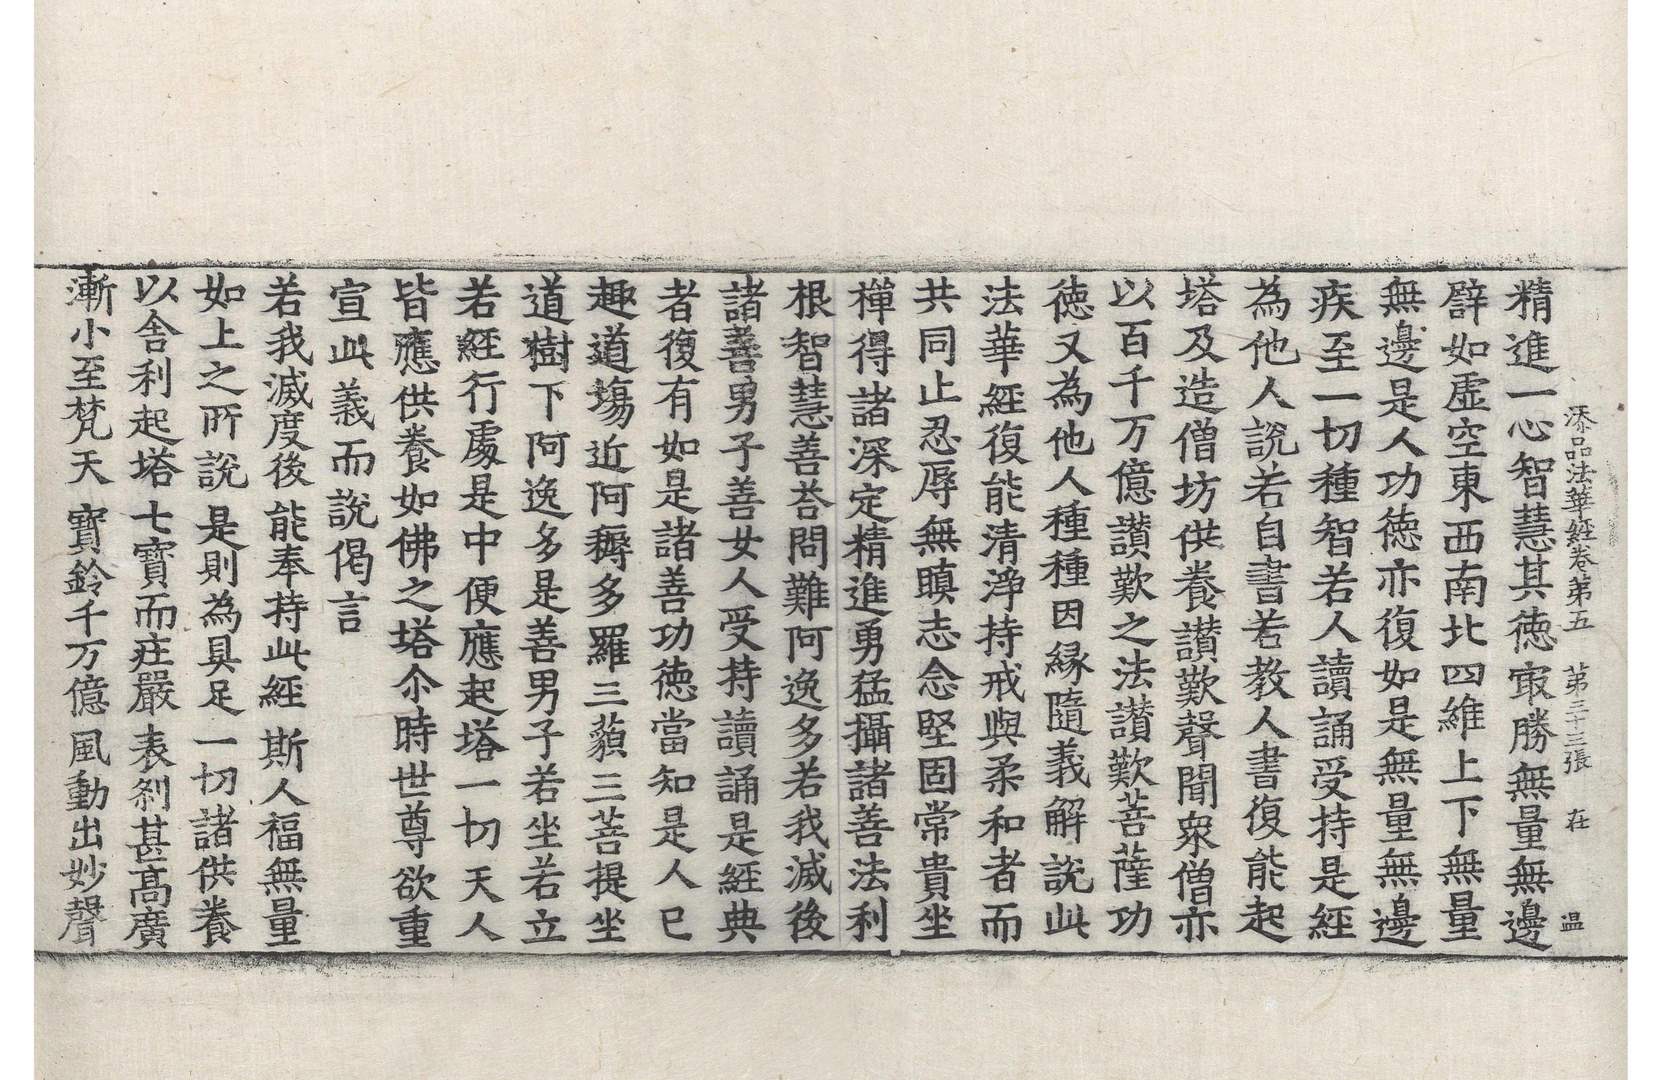 添品法華經卷第五 第三十三張 在 温
精進一心智慧其德㝡勝無量無邊
譬如虛空東西南北四維上下無量
無邊是人功德亦復如是無量無邊
疾至一切種智若人讀誦受持是經
為他人說若自書若教人書復能起
塔及造僧坊供養讃歎聲聞衆僧亦
以百千万億讃歎之法讃歎菩薩功
德又為他人種種因緣隨義解說此
法華經復能清淨持戒與柔和者而
共同止忍辱無瞋志念堅固常貴坐
禪得諸深定精進勇猛攝諸善法利
根智慧善荅問難阿逸多若我滅後
諸善男子善女人受持讀誦是經典
者復有如是諸善功德當知是人已
趣道塲近阿耨多羅三藐三菩提坐
道樹下阿逸多是善男子若坐若立
若經行處是中便應起塔一切天人
皆應供養如佛之塔尒時世尊欲重
宣此義而說偈言
若我滅度後 能奉持此經 斯人福無量
如上之所說 是則為具足 一切諸供養
以舍利起塔 七寶而莊嚴 表刹甚高廣
漸小至梵天 寶鈴千万億 風動出妙聲